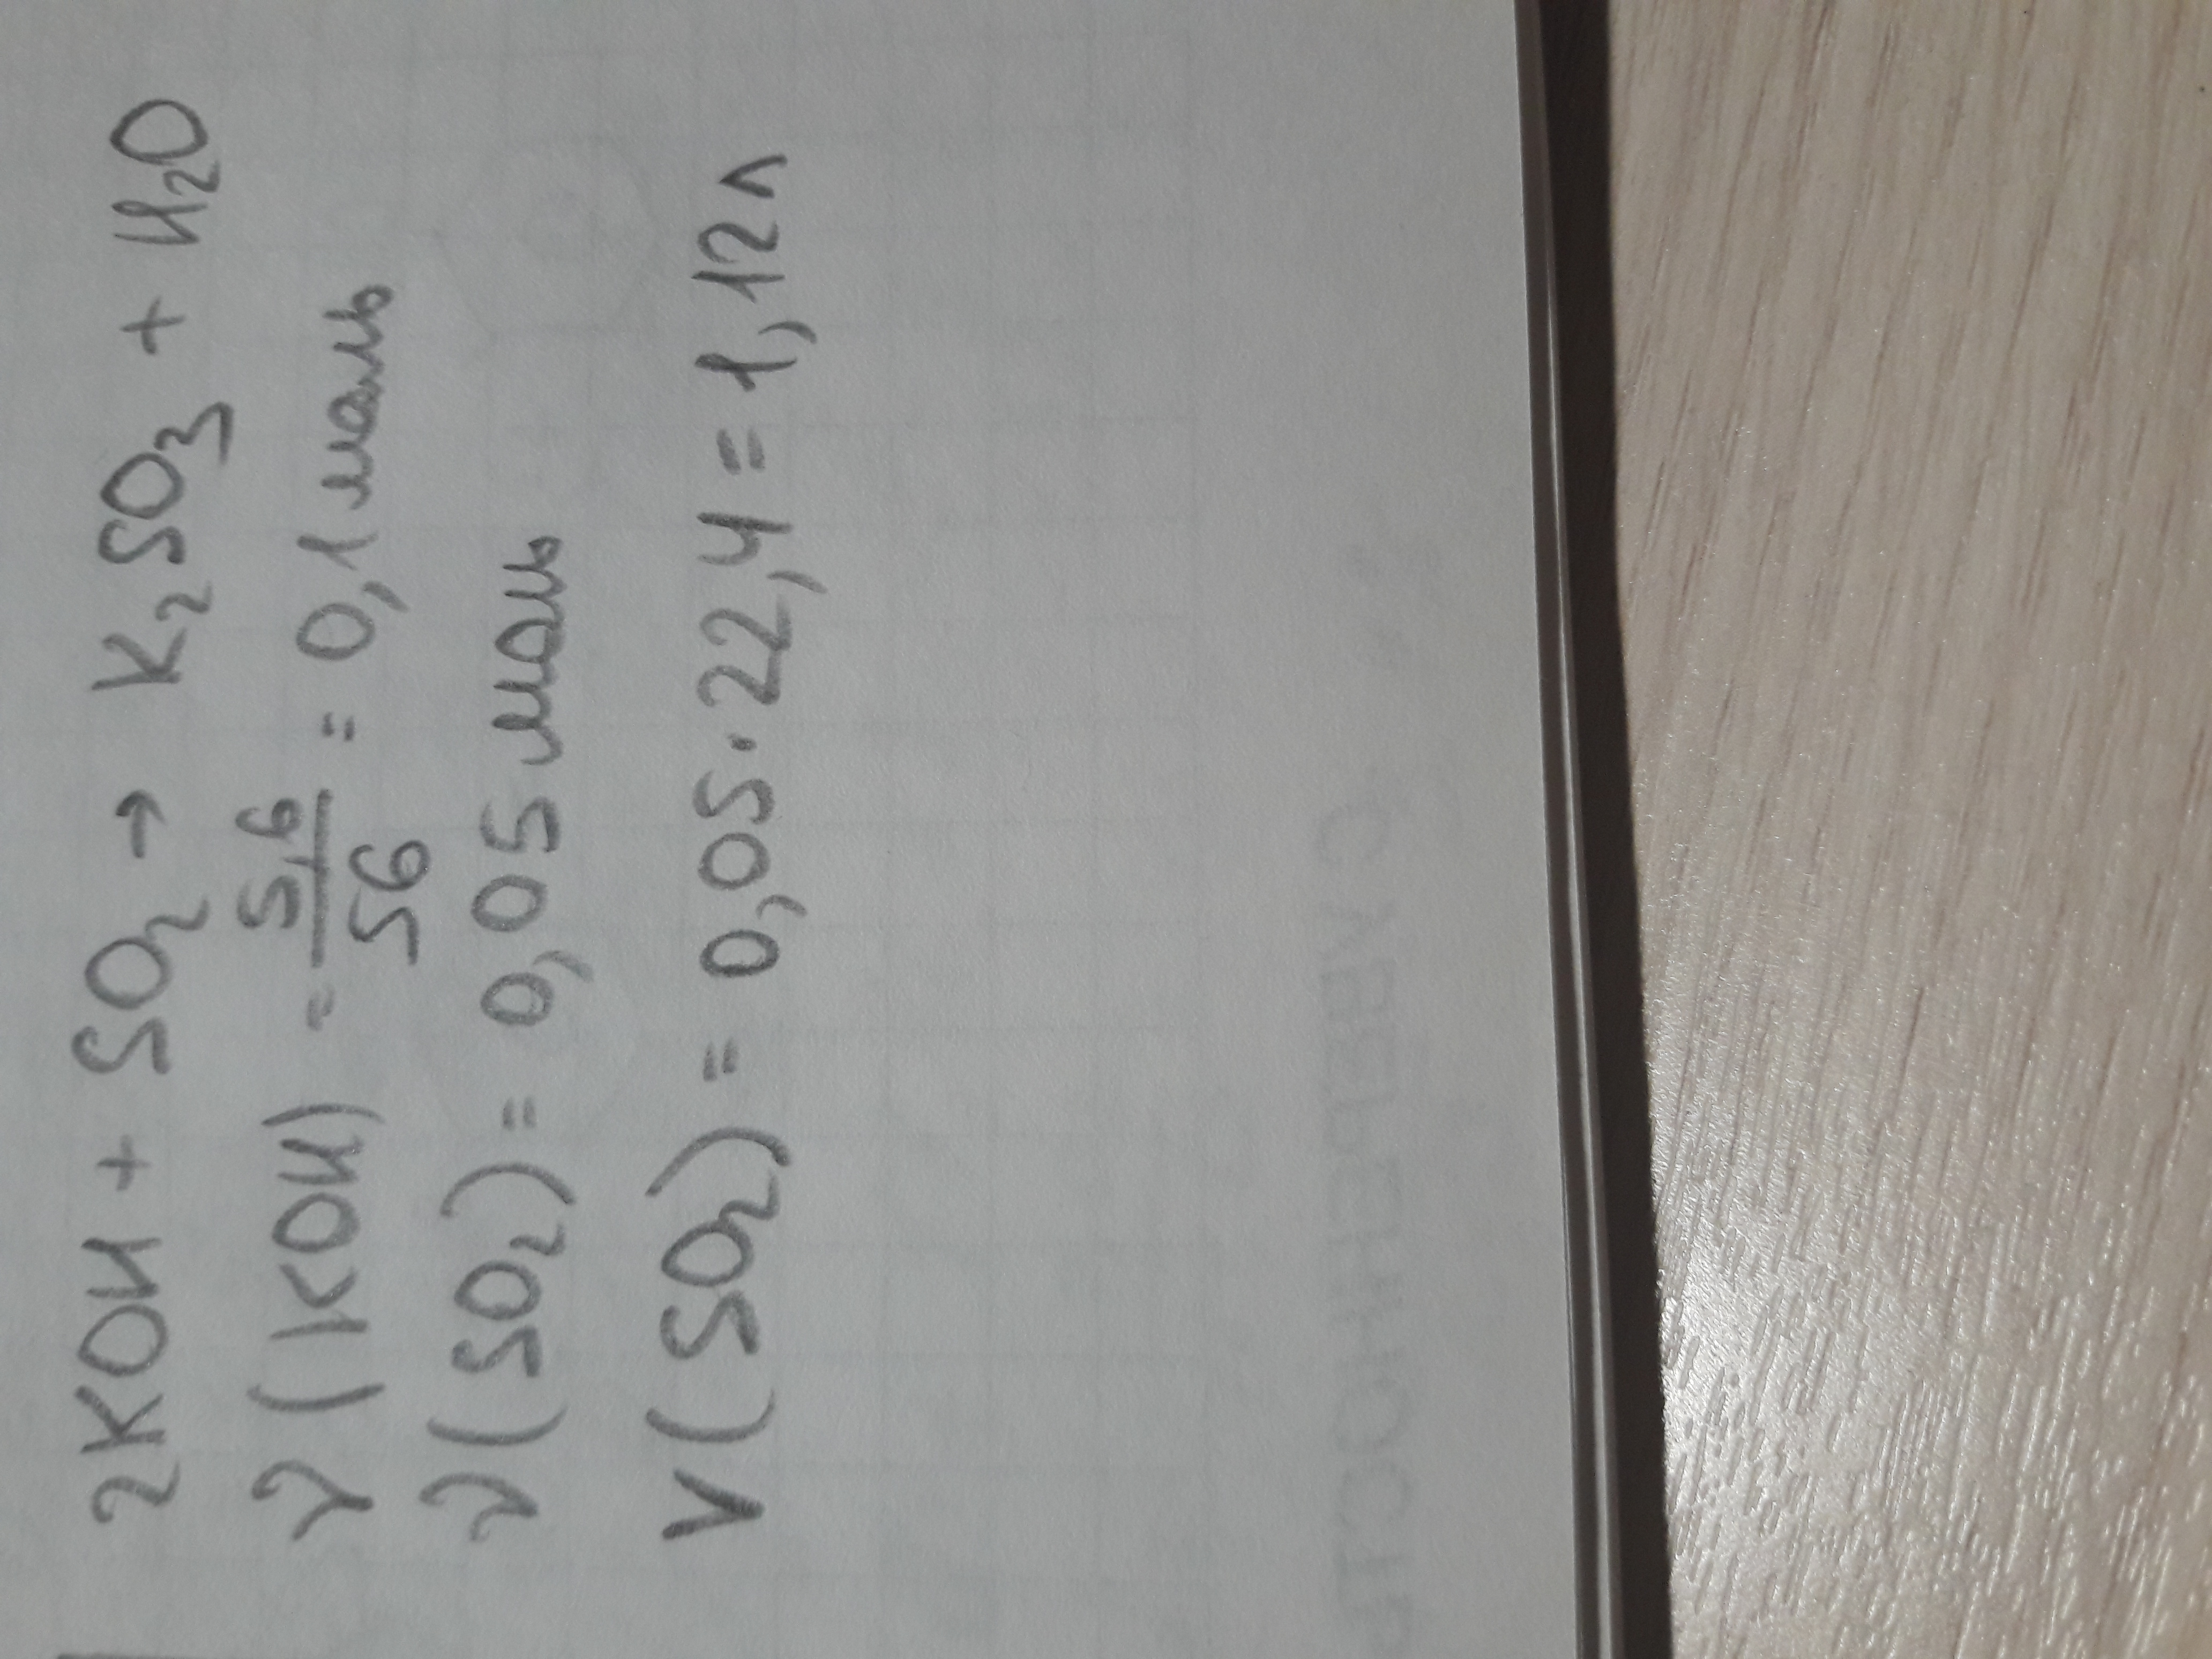 2KOH + SO₂ → K₂SO₃ + H₂O
ν(KOH) = 5,6/56 = 0,1 моль
ν(SO₂) = 0,05 моль
V(SO₂) = 0,05·22,4 = 1,12 л